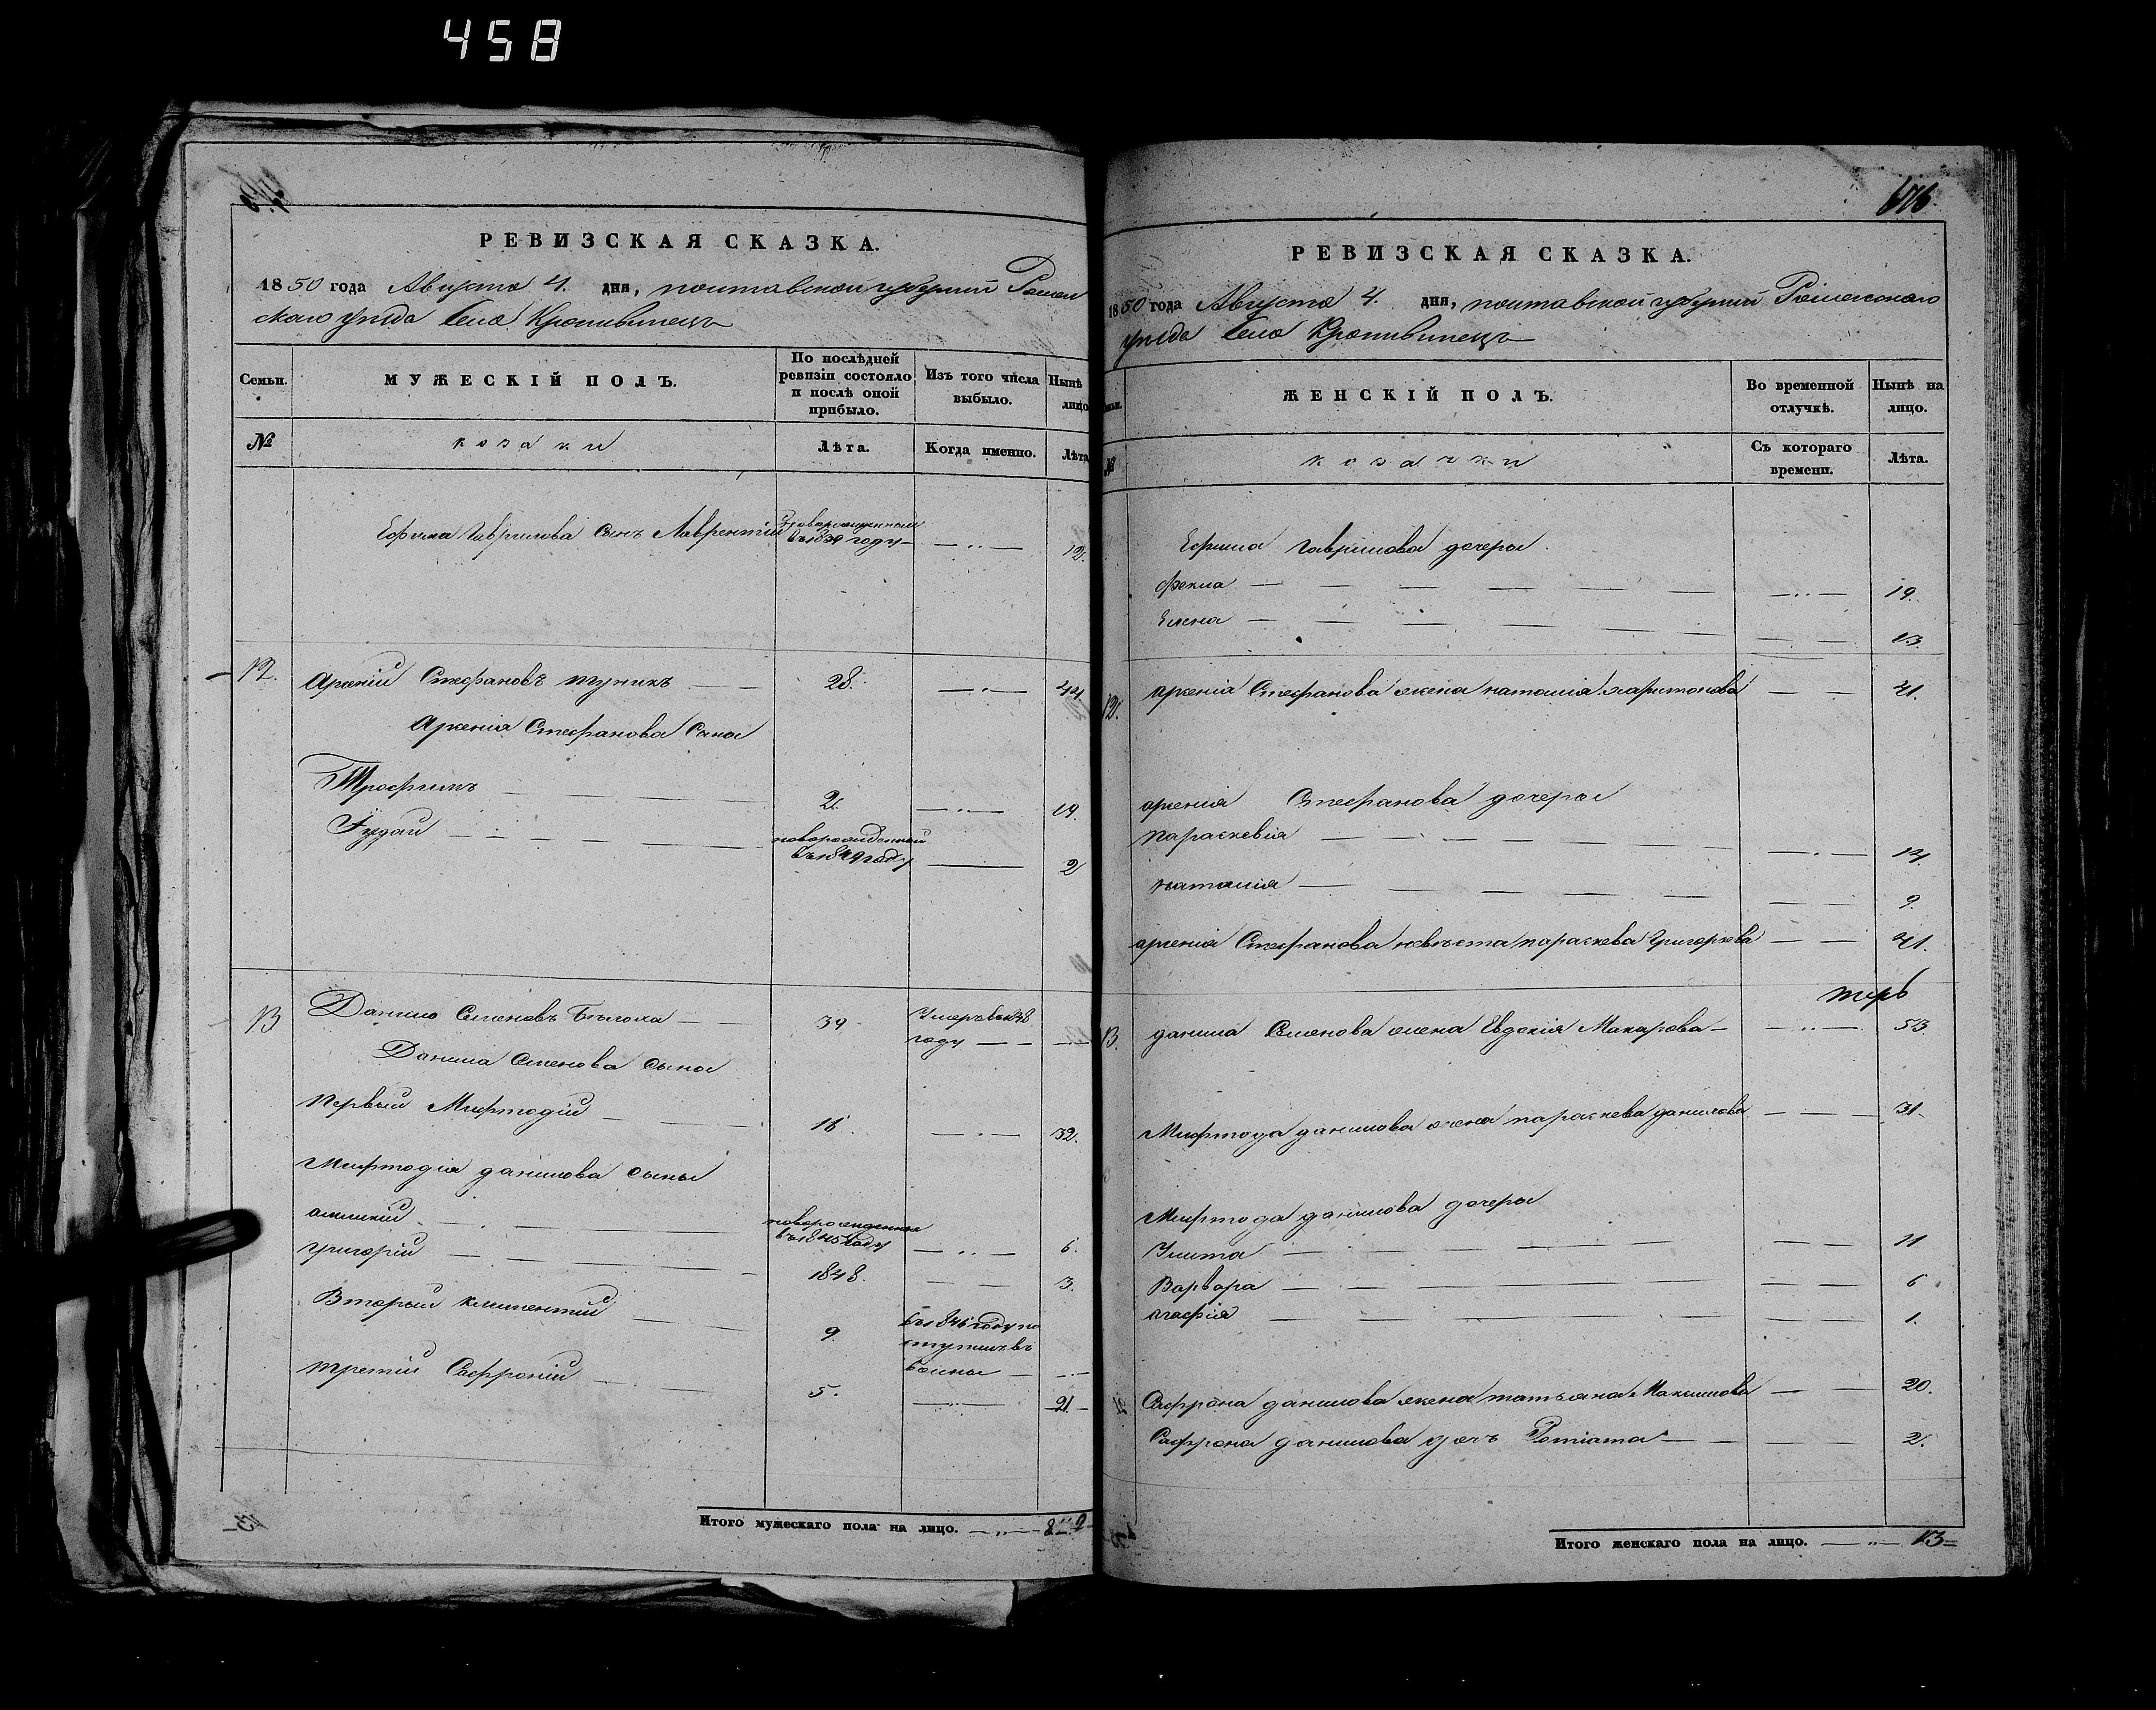 458
РЕВИЗСКАЯ СКАЗКА.
1850 года Августа 4. дня, полтавской губернии Ромен
скаго уезда Село Кропивинецъ
Семьи.
МУЖЕСКІЙ ПОЛЪ.
По послѣдней ревизіи состояло и послѣ оной прибыло.
Изъ того числа выбыло.
Нынѣ лицо
№
козаки
Лѣта.
Когда именно.
Лѣта
Ефима Гаврилова Сынъ Лаврентій новорожденный въ 1839 году 12.
12. Арсеній Стефановъ тупикъ 28. 44.
Арсенія Стефанова Сыны
Трофимъ 2. 19.
новорожденный въ 1849 году 2
13 Данило Семеновъ Бѣлоха 39 Умеръ въ 1848 году
Данила Семенова Сыны
первый Мифтодій 16. 32.
Мифтодія данилова сыны
новорожденные въ 1845 году 6.
григорій 1848. 3.
Вторый климентій 9. въ 1846 году
третій Сафроній 5. 21.
Итого мужескаго пола на лицо.
676.
РЕВИЗСКАЯ СКАЗКА.
1850 года Августа 4. дня, полтавской губерніи Роменскаго
уезда Село Кропивинецъ
ЖЕНСКІЙ ПОЛЪ.
Во временной отлучкѣ.
Нынѣ на лицо.
№
козачки
Съ котораго времени.
Лѣта.
Ефима Гаврилова дочеры
Фекла 19.
Елена 13
12. арсенія Стефанова жена наталія харитонова 41.
арсенія Стефанова дочеры
параскевія 14.
наталія 9.
арсенія Стефанова невѣста параскева Григорьева 21.
13. данила Семенова жена Евдокія Макарова 53.
Мифтода данилова жена параскева данилова 31.
Мифтода данилова дочеры
Улита 11
Варвара 6
агафія 1.
Сафрона данилова жена татьяна Максимова 20.
Сафрона данилова дочъ 2.
Итого женскаго пола на лицо. 13